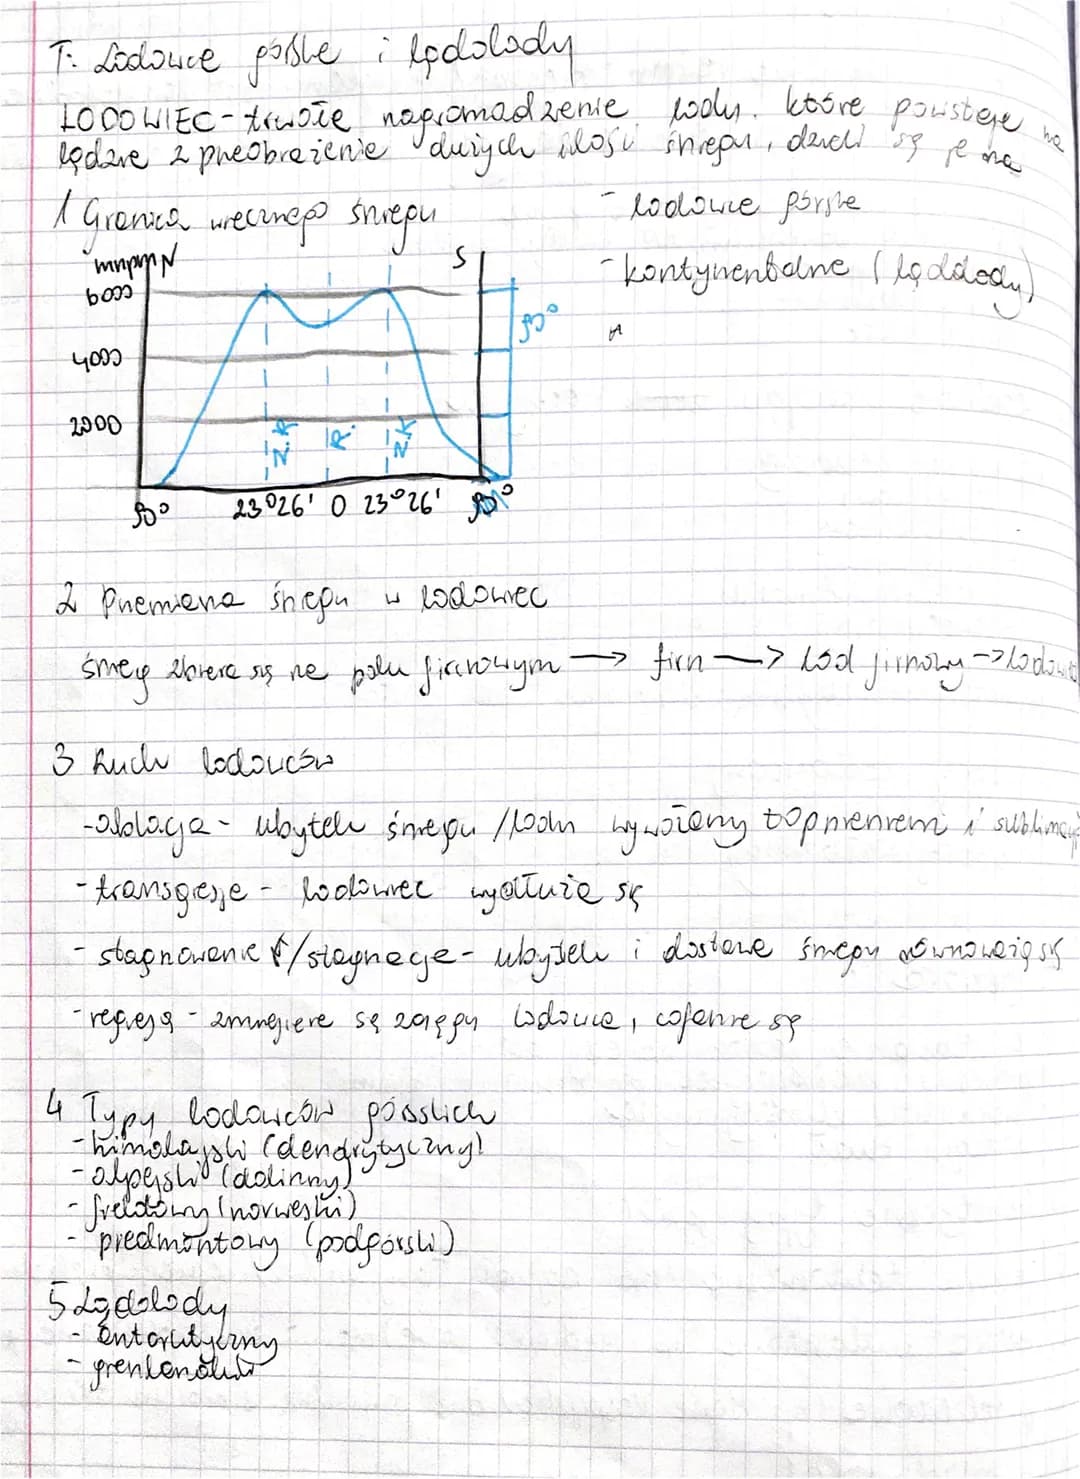 T: Lodowce górskie i lądolody
LODOWIEC - trwałe nagromadzenie lodu. które powstaje na
lądzie z przeobrażenie dużych ilości śniegu, dzieli się je na
- lodowce górskie
- kontynentalne (lądolody)
1 Granica wiecznego śniegu
mnpm N S
6000
4000
2000
90°
Z.R R. Z.K
90° 23°26' 0 23°26' 90°
2 Przemiana śniegu w lodowiec
śnieg zbiera się na polu firnowym → firn → lód firnowy → lodowiec
3 Ruch lodowców
- ablacja - ubytek śniegu / lodu wywołany topnieniem i sublimacją
- transgresje - lodowiec wydłuża się
- stagnowanie /stagnacje - ubytek i dostawa śniegu równoważą się
- regresja - zmniejszenie się zasięgu lodowca, cofanie się
4 Typy lodowców górskich
- himalajski (dendrytyczny)
- alpejski (dolinny)
- fieldowy (norweski)
- piedmontowy (podgórski)
5 Lądolody
- antarktyczny
- grenlandzki